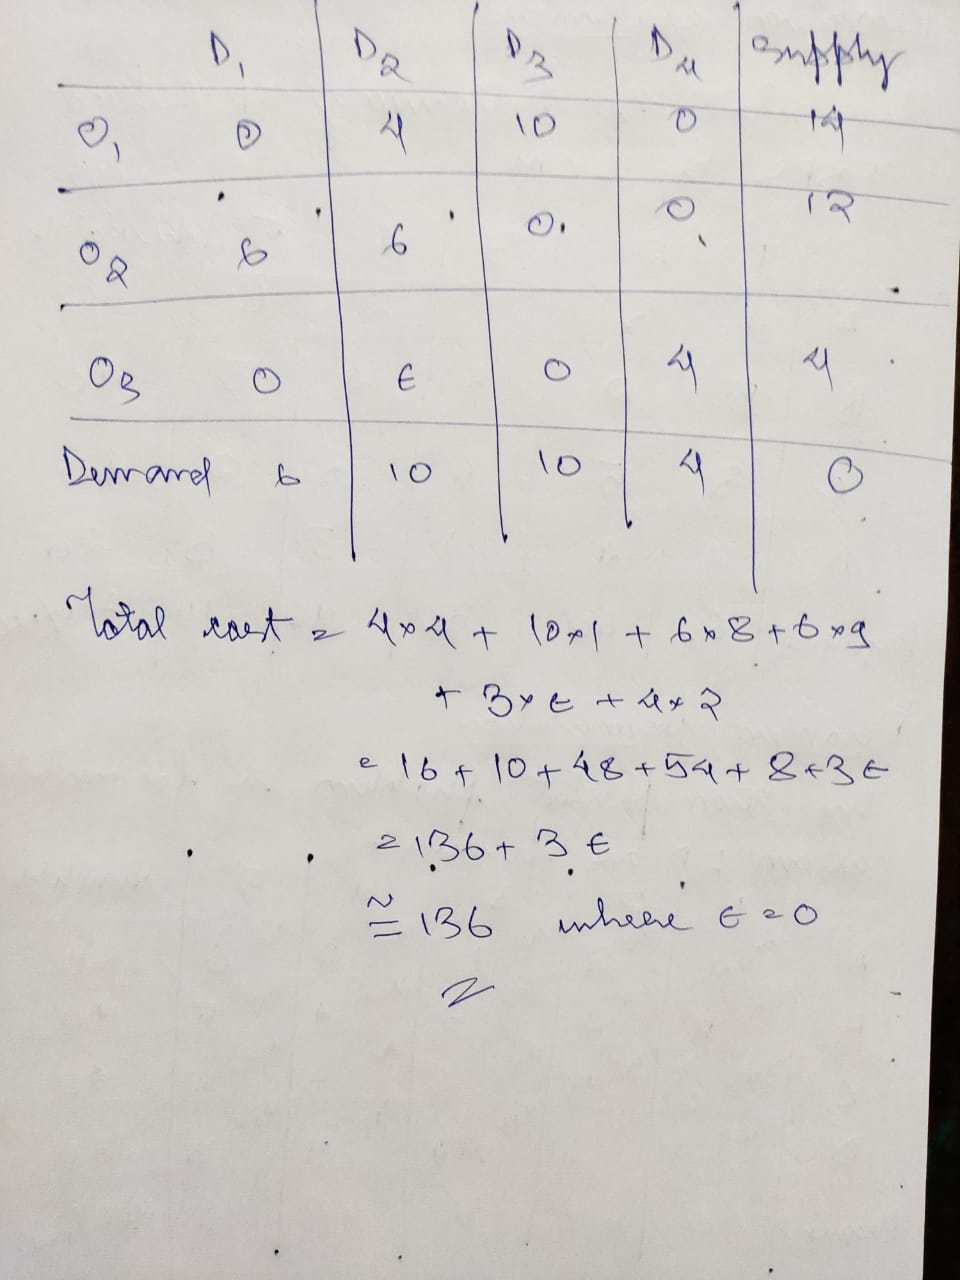 D1 D2 D3 D4 Supply
O1 0 4 10 0 14
O2 6 6 0 0 12
O3 0 ε 0 4 4
Demand 6 10 10 4 0
Total cost = 4×4 + 10×1 + 6×8 + 6×9
+ 3×ε + 4×2
= 16 + 10 + 48 + 54 + 8 + 3ε
= 136 + 3ε
≅ 136 where ε = 0